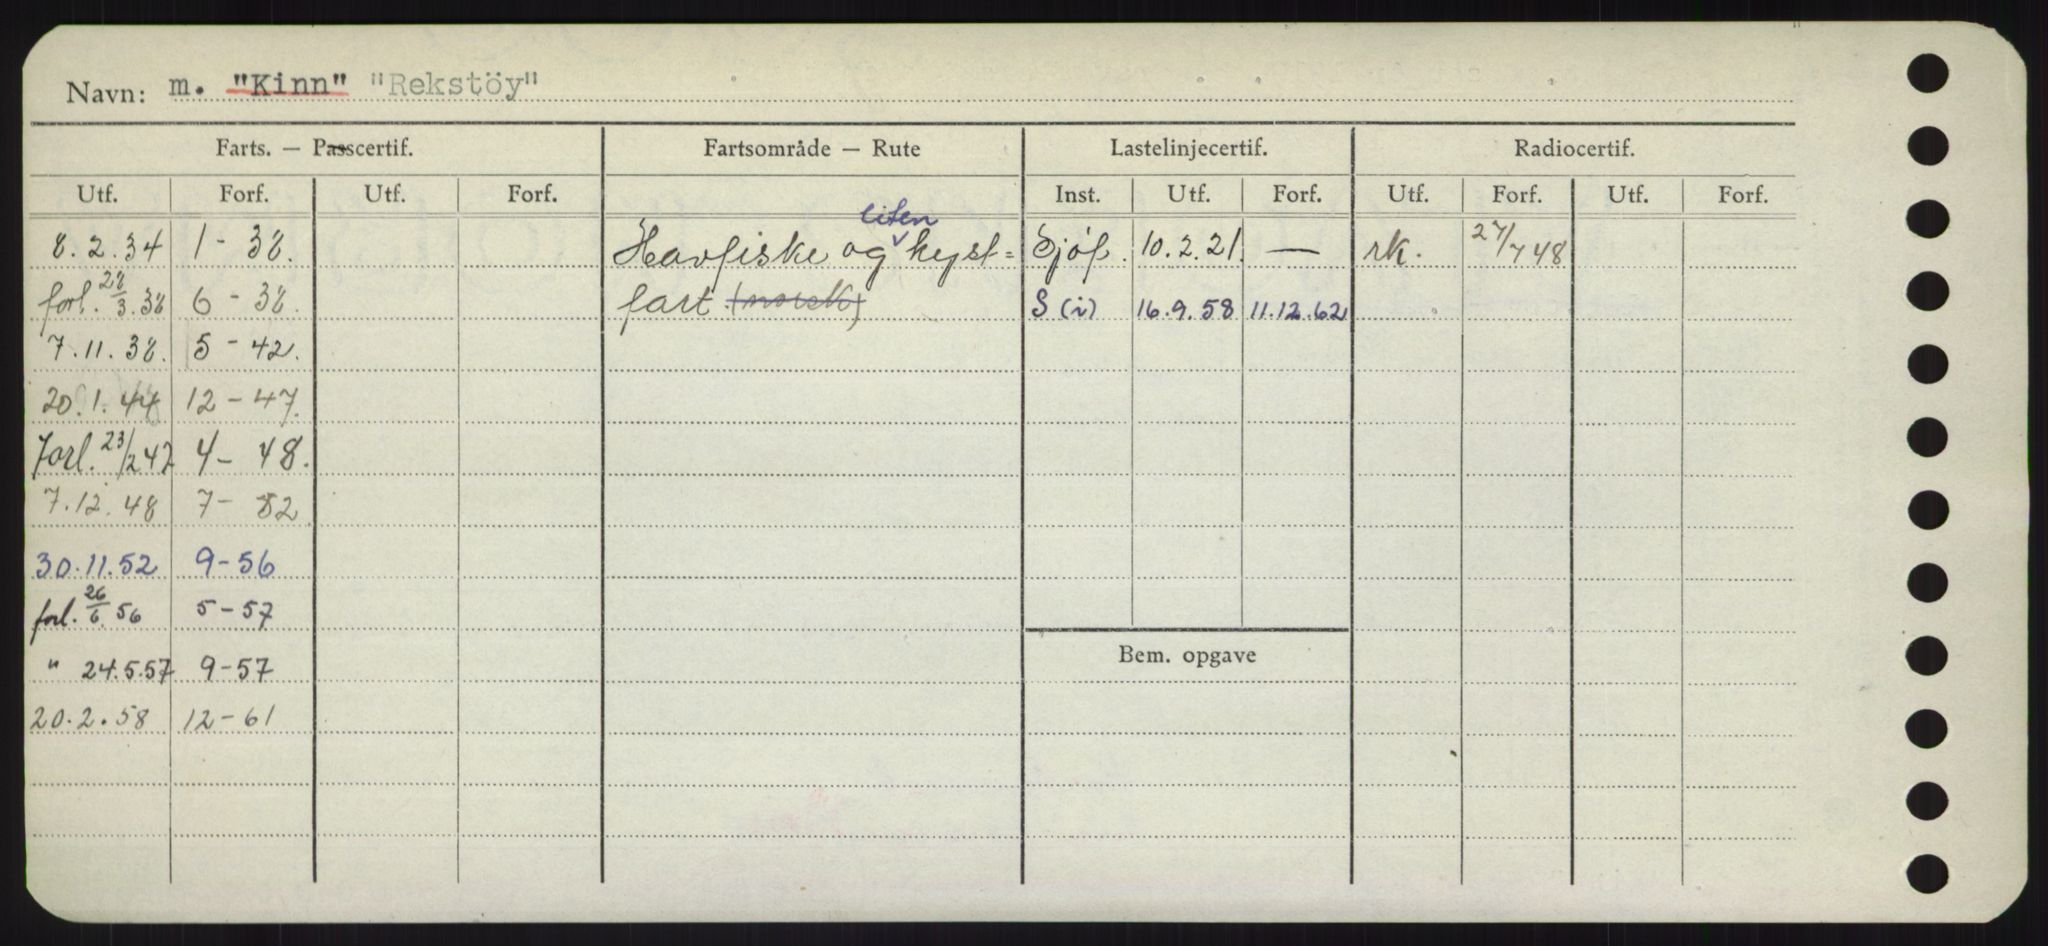 Navn: m. "Kinn" "Rekstöy"
Farts. — Passcertif. Fartsområde — Rute Lastelinjecertif. Radiocertif.
Utf. Forf. Utf. Forf. Inst. Utf. Forf. Utf. Forf. Utf. Forf.
liten
8.2.34 1-38. Havfiske og kyst= Sjøf. 10.2.21. — rk. 27/7 48
forl. 28/3.38 6-38. fart (norsk) S (i) 16.9.58 11.12.62
7.11.38. 5-42.
20.1.44 12-47.
Forl. 23/2 47 4-48.
7.12.48 7-52
30.11.52 9-56
forl. 26/6 56 5-57
" 24.5.57 9-57
Bem. opgave
20.2.58 12-61